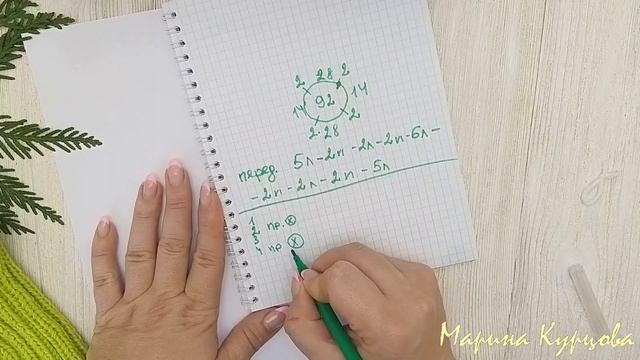 2 28 2
14 92 14
2 · 28 2
перед. 5л - 2п - 2л - 2п - 6л -
- 2п - 2л - 2п - 5л
1
2 пр. x
3
4 пр x
Марина Курцова